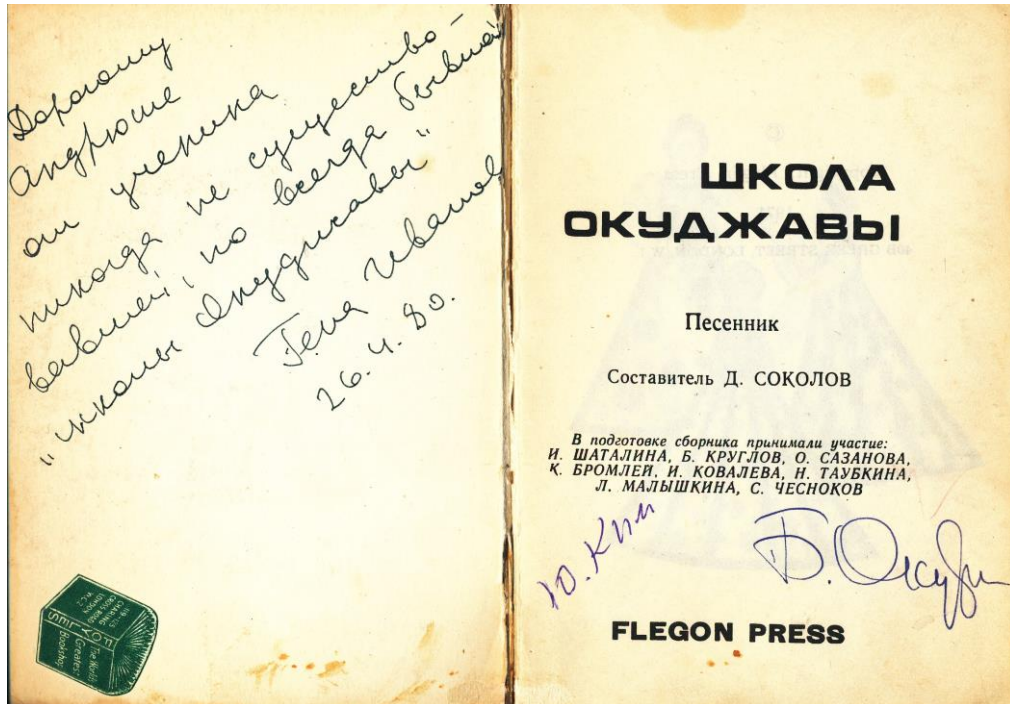 Дорогому
Андрюше
от ученика
никогда не существо-
вавшей, но всегда бывшей
"школы Окуджавы"
Гена Иванов
26.4.80.
118
CHARING
CROSS ROAD
LONDON
W.C.2
FOYLES
The World's
Greatest
Bookshop
ШКОЛА
ОКУДЖАВЫ
Песенник
Составитель Д. СОКОЛОВ
В подготовке сборника принимали участие:
И. ШАТАЛИНА, Б. КРУГЛОВ, О. САЗАНОВА,
К. БРОМЛЕЙ, И. КОВАЛЕВА, Н. ТАУБКИНА,
Л. МАЛЫШКИНА, С. ЧЕСНОКОВ
Ю. Ким
Б. Окуд
FLEGON PRESS